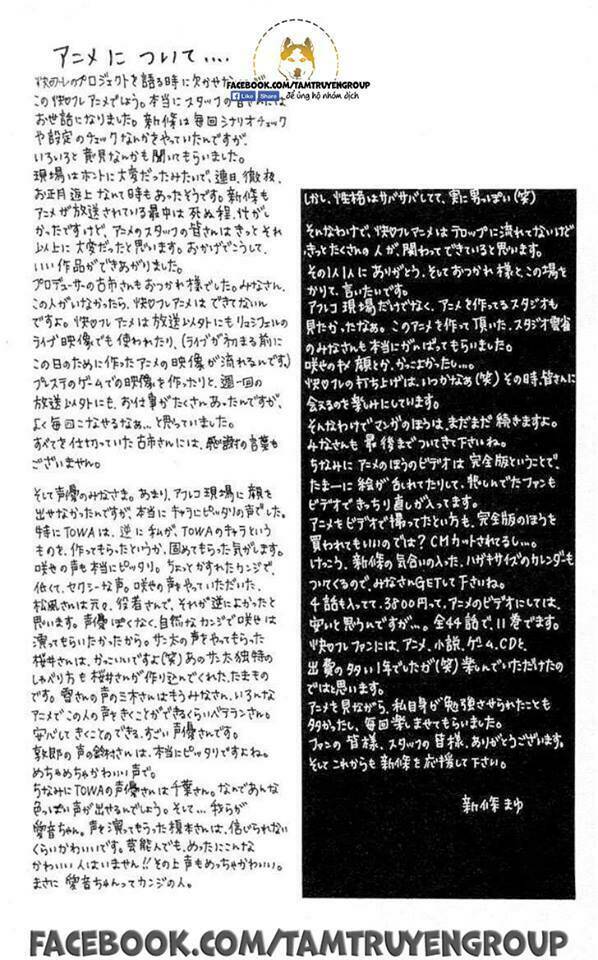 アニメに ついて....
FACEBOOK.COM/TAMTRUYENGROUP
Like Share để ủng hộ nhóm dịch
快♡フレのプロジェクトを語る時に欠かせない
この快♡フレアニメでしょう。本当にスタッフの皆さんには
お世話になりました。新條は毎回シナリオチェック
や設定のチェックなんかをやっていたんですが、
いろいろと意見なんかも聞いてもらいました。
現場はホントに大変だったみたいで、連日、徹夜、
お正月返上なんて時もあったそうです。新條も
アニメが放送されている最中は死ぬ程、忙がし
かったですけど、アニメのスタッフの皆さんはきっとそれ
以上に大変だったと思います。おかげでこうして、
いい作品ができあがりました。
プロデューサーの古市さんもおつかれ様でした。みなさん、
この人がいなかったら、快♡フレアニメはできてないん
ですよ。快♡フレアニメは放送以外にもリュシフェルの
ライブ映像でも使われたり、(ライブが初まる前に
この日のために作ったアニメの映像が流れるんです。)
プレステのゲームでの映像を作ったりと、週一回の
放送以外にも、お仕事がたくさんあったんですが、
よく毎回こなせるなぁ…と思っていました。
すべてを仕切っていた古市さんには、感謝の言葉も
ございません。
そして声優のみなさま。あまり、アフレコ現場に顔を
出せなかったんですが、本当にキャラにピッタリの声でした。
特にTOWAは、逆に私が、TOWAのキャラという
ものを、作ってもらったというか、固めてもらった気がします。
咲也の声も本当にピッタリ。ちょっとかすれたカンジで、
低くて、セクシーな声。咲也の声をやっていただいた、
松風さんは元々、役者さんで、それが逆によかったと
思います。声優っぽくなく、自然なカンジで咲也は
演ってもらいたかったから。サン太の声をやってもらった
桜井さんは、かっこいいですよ(笑)あのサン太独特の
しゃべり方も桜井さんが作り込んでくれた、たまもの
です。雪さんの声の三木さんはもうみなさん、いろんな
アニメでこの人の声をきくことができるくらいベテランさん。
安心してきくことのできる、すごい声優さんです。
敦郎の声の鈴村さんは、本当にピッタリですよね。
めちゃめちゃかわいい声で。
ちなみにTOWAの声優さんは千葉さん。なんであんな
色っぽい声が出せるんでしょう。そして…我らが
愛音ちゃん。声を演ってもらった榎本さんは、信じられない
くらいかわいいです。芸能人でも、めったにこんな
かわいい人はいません!!その上声もめっちゃかわいい。
まさに愛音ちゃんってカンジの人。
しかし、性格はサバサバしてて、実に男っぽい(笑)
そんなわけで、快♡フレアニメはテロップに流れてないけど
きっとたくさんの人が、関わってできていると思います。
その1人1人にありがとう、そしておつかれ様とこの場を
かりて、言いたいです。
アフレコ現場だけでなく、アニメを作ってるスタジオも
見たかったなぁ。このアニメを作って頂いた、スタジオ雲雀
のみなさんも本当にがんばってもらいました。
咲也のキメ顔とか、かっこよかったし…。
快♡フレの打ち上げは、いつかなぁ(笑)その時、皆さんに
会えるのを楽しみにしています。
そんなわけでマンガのほうは、まだまだ続きますよ。
みなさんも最後までついてきて下さいね。
ちなみにアニメのほうのビデオは完全版ということで、
たまーに絵が乱れてたりして、悲しんでたファンも
ビデオできっちり直しが入ってます。
アニメをビデオで撮ってたという方も、完全版のほうを
買われてもいいのでは?CMカットされてるし…。
けっこう、新條の気合いの入った、ハガキサイズのカレンダーも
ついてくるので、みなさんGETして下さいね。
4話も入ってて、3800円って、アニメのビデオにしては、
安いと思うんですが…。全44話で、11巻でます。
快♡フレファンには、アニメ、小説、ゲーム、CDと、
出費の多い1年でしたが(笑)楽しんでいただけたの
ではと思います。
アニメを見ながら、私自身が勉強させられたことも
多かったし、毎回楽しませてもらいました。
ファンの皆様、スタッフの皆様、ありがとうございます。
そしてこれからも新條を応援して下さい。
新條まゆ
FACEBOOK.COM/TAMTRUYENGROUP